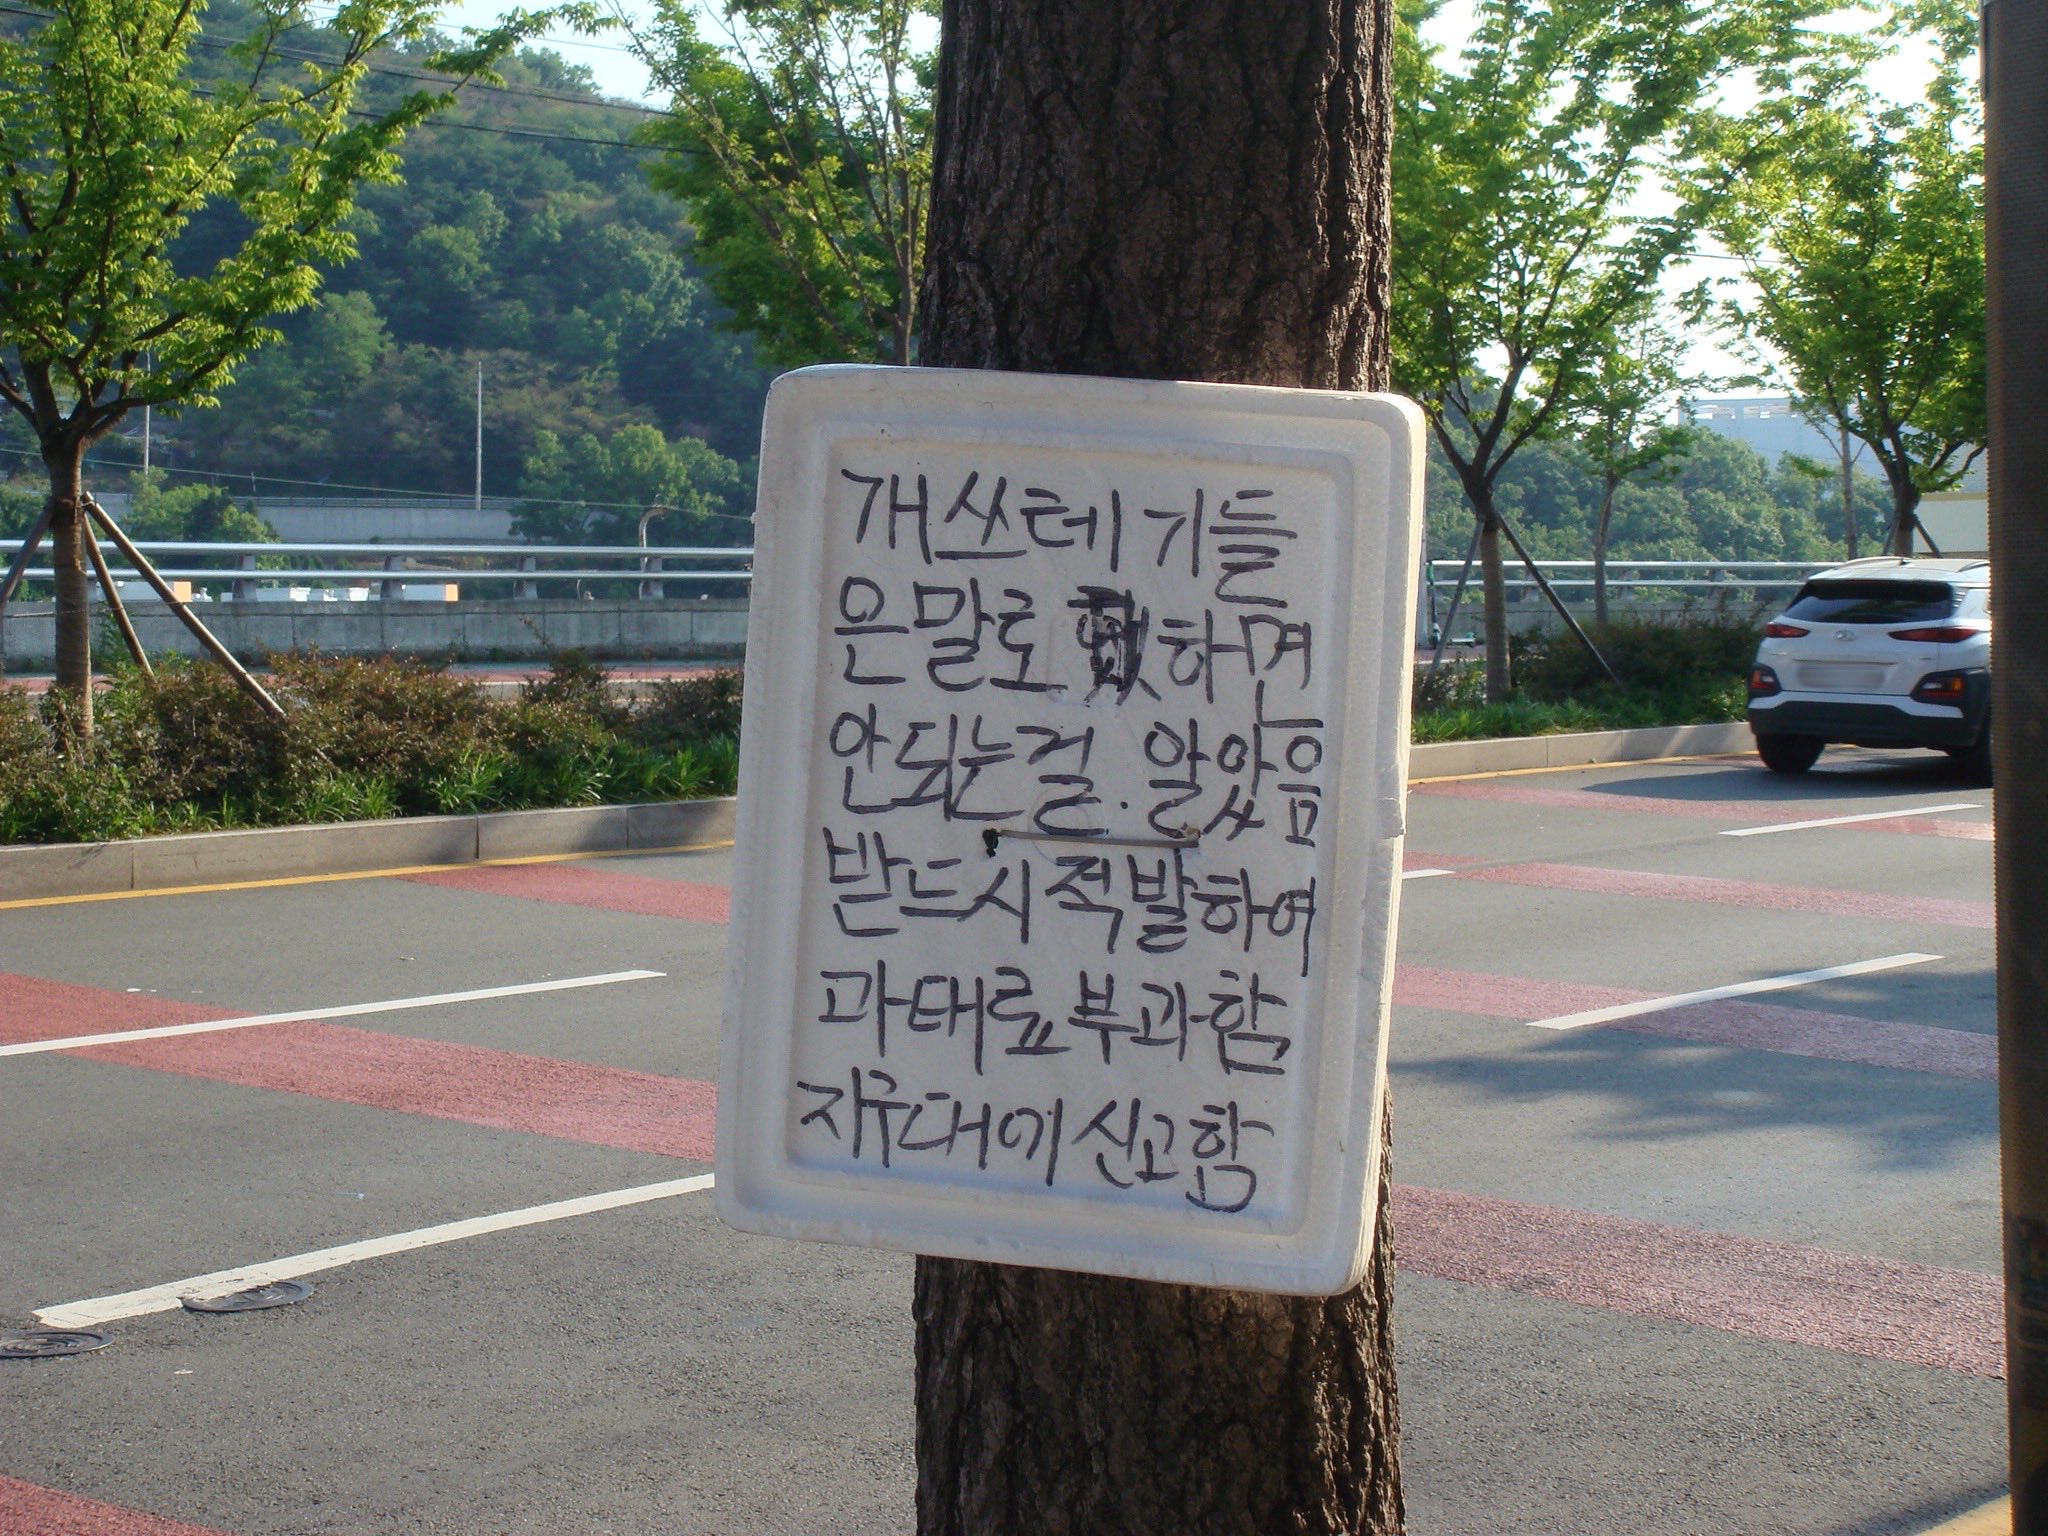 개쓰테기들
은말로 하면
안되는걸. 알았음
받드시적발하여
과태료부과함
지구대에신고함